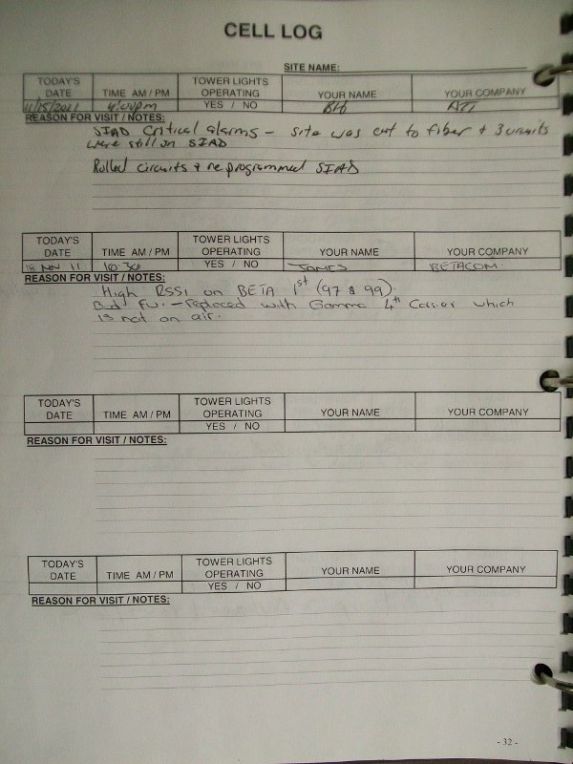 CELL LOG
SITE NAME:
TODAY'S DATE TIME AM / PM TOWER LIGHTS OPERATING YOUR NAME YOUR COMPANY
4:00pm YES / NO
REASON FOR VISIT / NOTES:
SIAD Critical alarms - site was cut to fiber + 3 circuits
were still on SIAD
Rolled circuits + reprogrammed SIAD
TODAY'S DATE TIME AM / PM TOWER LIGHTS OPERATING YOUR NAME YOUR COMPANY
18 NOV 11 10:30 YES / NO JAMES BETACOM
REASON FOR VISIT / NOTES:
High RSSI on BETA 1st (97 & 99)
Bad - Replaced with Gamma 4th Carrier which
is not on air.
TODAY'S DATE TIME AM / PM TOWER LIGHTS OPERATING YOUR NAME YOUR COMPANY
YES / NO
REASON FOR VISIT / NOTES:
TODAY'S DATE TIME AM / PM TOWER LIGHTS OPERATING YOUR NAME YOUR COMPANY
YES / NO
REASON FOR VISIT / NOTES:
- 32 -